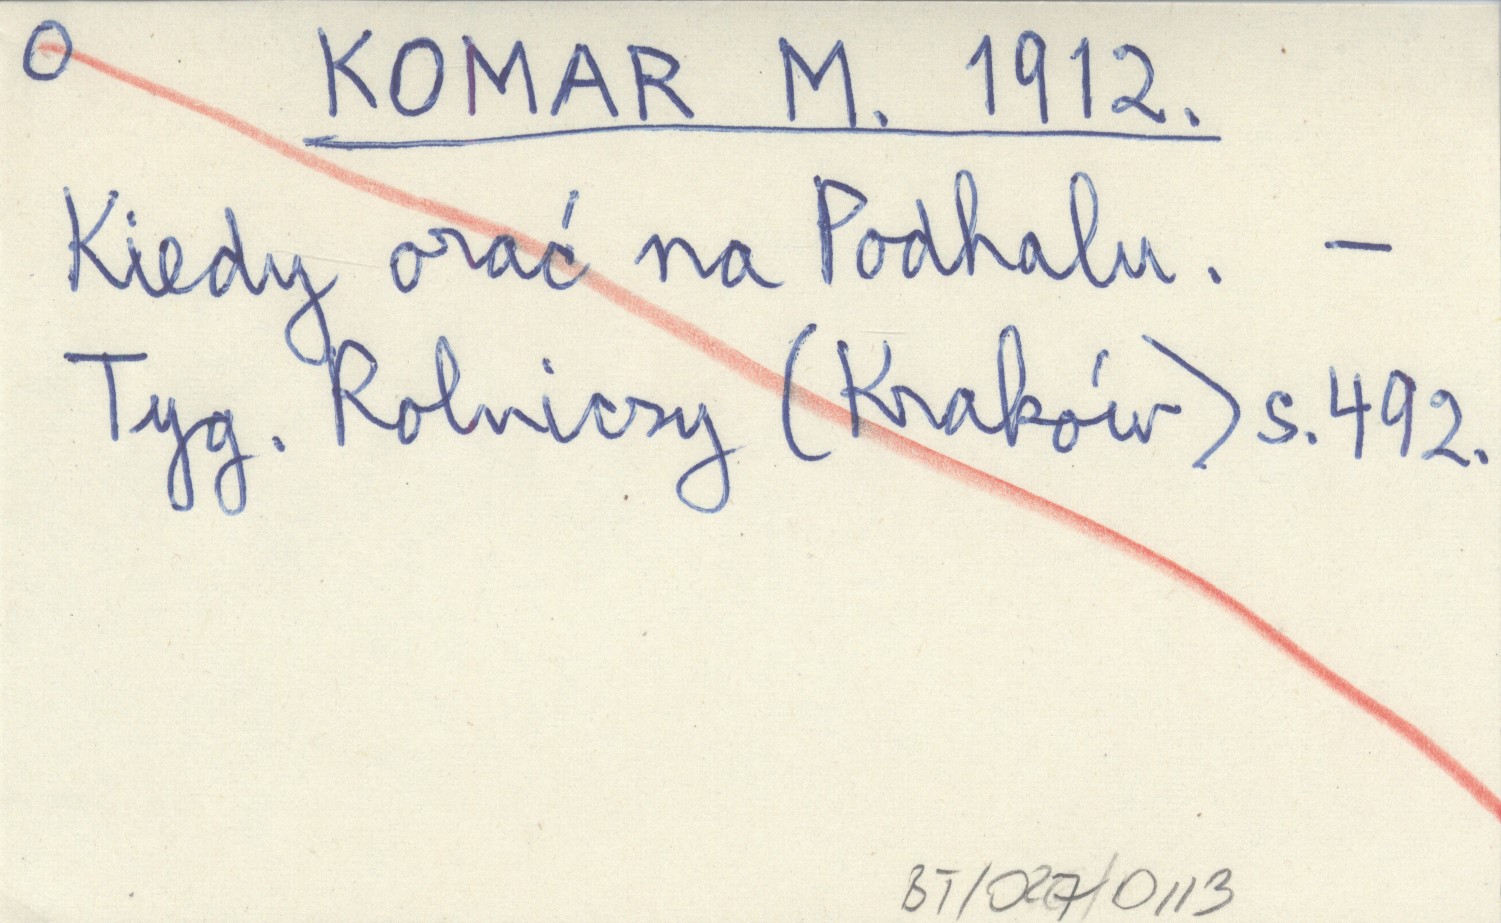 O
KOMAR M. 1912.
Kiedy orać na Podhalu. –
Tyg. Rolniczy (Kraków) s. 492.
BT/027/0113